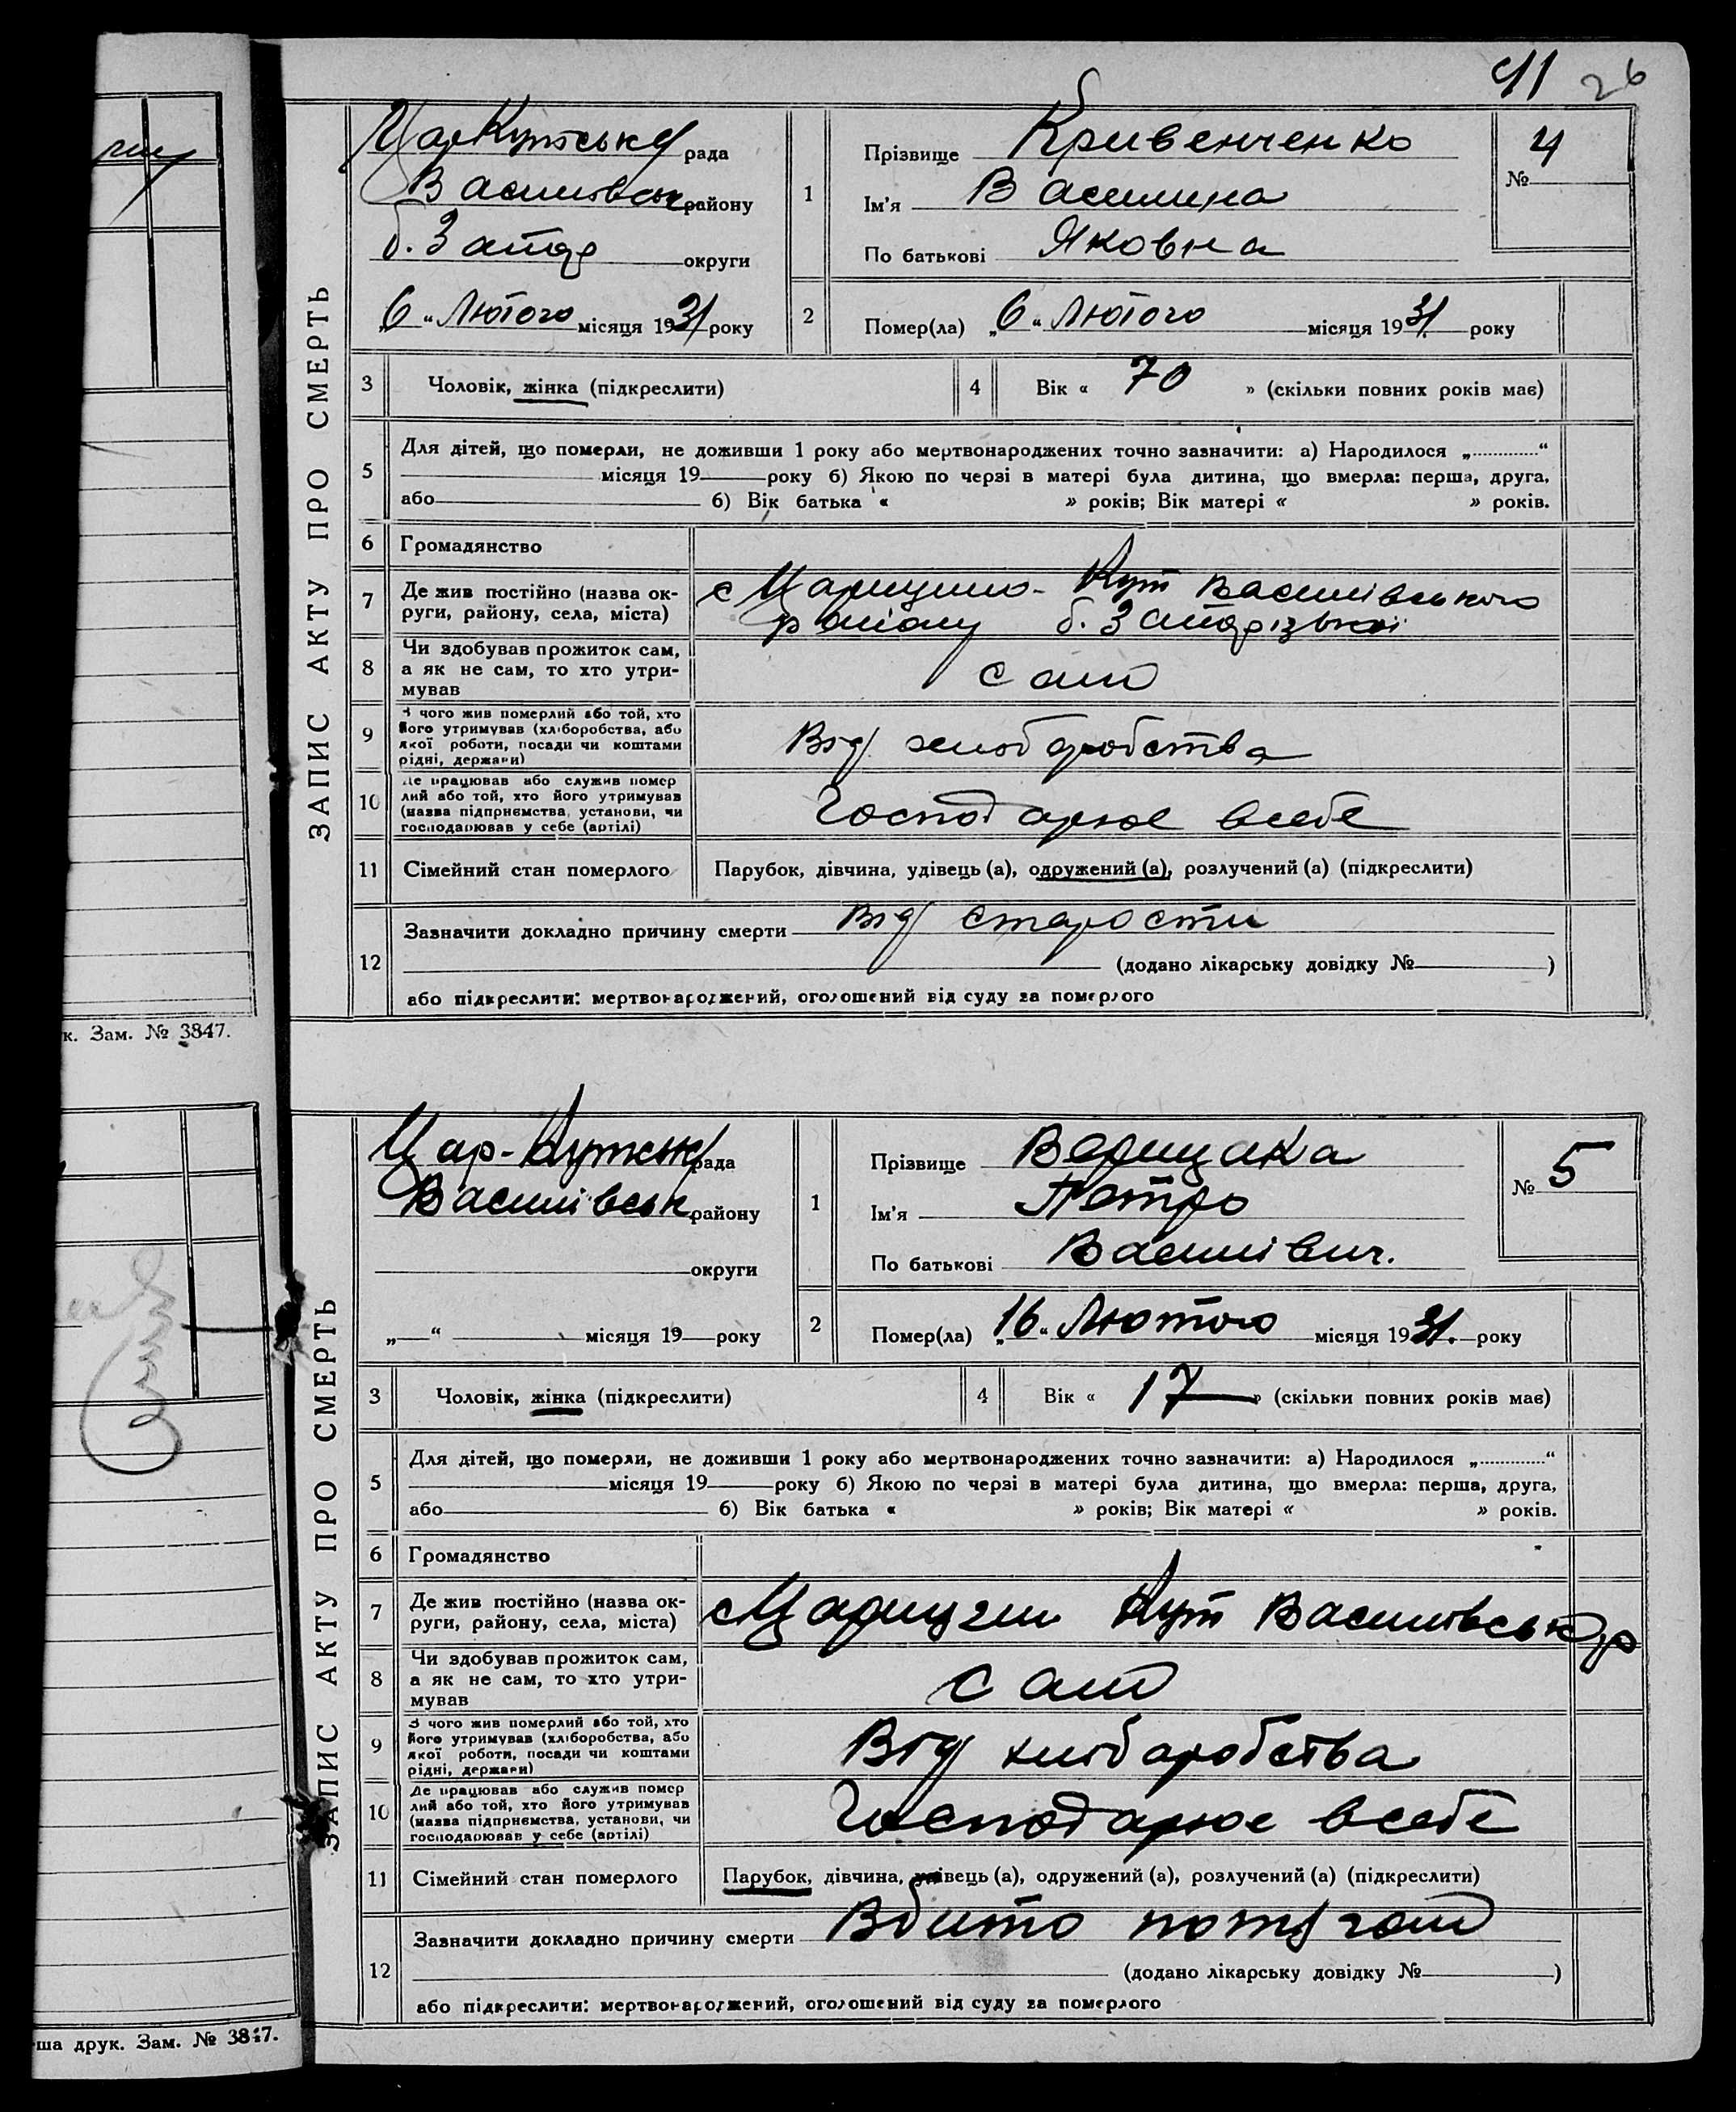 41 26
ЗАПИС АКТУ ПРО СМЕРТЬ
ЦарКутськ рада
Василівськ району
б. Запор округи
„6“ Лютого місяця 1931 року
1
Прізвище Кривенченко
Ім'я Василина
По батькові Яковна
№ 4
2
Помер(ла) „6“ Лютого місяця 1931 року
3 Чоловік, жінка (підкреслити)
4 Вік « 70 » (скільки повних років має)
5 Для дітей, що померли, не доживши 1 року або мертвонароджених точно зазначити: а) Народилося „ “
місяця 19 року б) Якою по черзі в матері була дитина, що вмерла: перша, друга,
або б) Вік батька « » років; Вік матері « » років.
6 Громадянство
7 Де жив постійно (назва ок-
руги, району, села, міста)
с Царицино-Кут Василівського
району б. Запорізької
8 Чи здобував прожиток сам,
а як не сам, то хто утри-
мував
сам
9 З чого жив померлий або той, хто
його утримував (хліборобства, або
якої роботи, посади чи коштами
рідні, держави)
Від хліборобства
10 Де працював або служив помер
лий або той, хто його утримував
(назва підприємства, установи, чи
господарював у себе (артілі)
Господарює всебе
11 Сімейний стан померлого
Парубок, дівчина, удівець (а), одружений (а), розлучений (а) (підкреслити)
12 Зазначити докладно причину смерти Від старости
(додано лікарську довідку № )
або підкреслити: мертвонароджений, оголошений від суду за померлого
к. Зам. № 3847.
ЗАПИС АКТУ ПРО СМЕРТЬ
Цар-Кутськ рада
Василівськ району
округи
„ “ місяця 19 року
1
Прізвище
Ім'я Петро
По батькові Василівич.
№ 5
2
Помер(ла) „16“ Лютого місяця 1931. року
3 Чоловік, жінка (підкреслити)
4 Вік « 17 » (скільки повних років має)
5 Для дітей, що померли, не доживши 1 року або мертвонароджених точно зазначити: а) Народилося „ “
місяця 19 року б) Якою по черзі в матері була дитина, що вмерла: перша, друга,
або б) Вік батька « » років; Вік матері « » років.
6 Громадянство
7 Де жив постійно (назва ок-
руги, району, села, міста)
с Кут Василівськ р
8 Чи здобував прожиток сам,
а як не сам, то хто утри-
мував
сам
9 З чого жив померлий або той, хто
його утримував (хліборобства, або
якої роботи, посади чи коштами
рідні, держави)
Від хліборобства
10 Де працював або служив помер
лий або той, хто його утримував
(назва підприємства, установи, чи
господарював у себе (артілі)
Господарює всебе
11 Сімейний стан померлого
Парубок, дівчина, удівець (а), одружений (а), розлучений (а) (підкреслити)
12 Зазначити докладно причину смерти Вбито потягом
(додано лікарську довідку № )
або підкреслити: мертвонароджений, оголошений від суду за померлого
ша друк. Зам. № 3847.